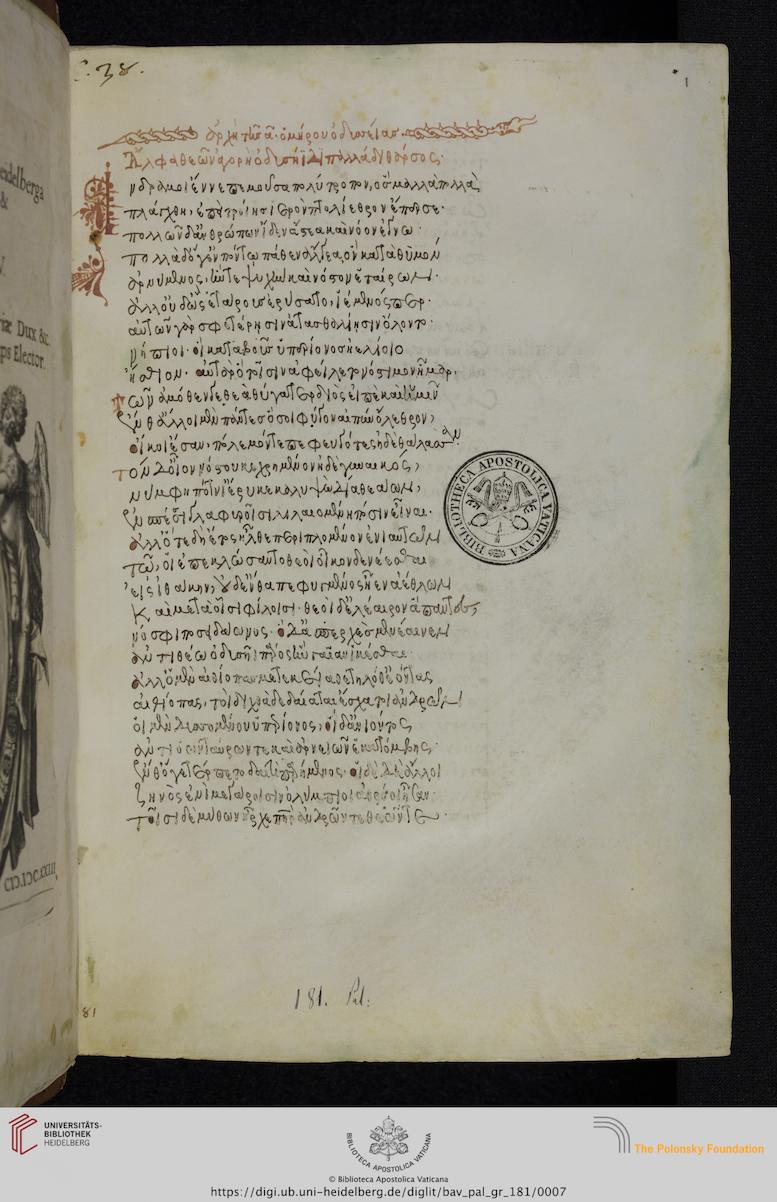 C. 38.
1
ἀρχὴ τῆς α· ὁμήρου ὀδυσσείας
Ἄλφα θεῶν ἀγορὴ ὀδυσῆϊ δὲ παλλάδι θάρσος·
νδρα μοι ἔννεπε μοῦσα πολύτροπον, ὃς μάλλα πολλὰ
πλάγχθη, ἐπεὶ τροίης ἱερὸν πτολίεθρον ἔπερσε·
πολλῶν δ' ἀνθρώπων ἴδεν ἄστεα καὶ νόον ἔγνω·
πολλὰ δ' ὅγ' ἐν πόντω πάθεν ἄλγεα, ὃν κατὰ θυμόν
ἀρνύμενος, ἥν τε ψυχὴν καὶ νόστον ἑταίρων·
ἀλλ' οὐδ' ὣς ἑτάρους ἐρύσατο, ἱέμενός περ·
αὐτῶν γὰρ σφετέρησιν ἀτασθαλίησιν ὄλοντο·
νήπιοι· οἳ κατὰ βοῦς ὑπερίονος ἠελίοιο
ἤσθιον· αὐτὰρ ὁ τοῖσιν ἀφείλετο νόστιμον ἦμαρ·
τῶν ἁμόθεν γε θεὰ θύγατερ διὸς εἰπὲ καὶ ἡμῖν
ἔνθ' ἄλλοι μὲν πάντες ὅσοι φύγον αἰπὺν ὄλεθρον,
οἴκοι ἔσαν, πόλεμόν τε πεφευγότες ἠδὲ θάλασσαν·
τὸν δ' οἶον νόστου κεχρημένον ἠδὲ γυναικός,
νύμφη πότνι' ἔρυκε καλυψὼ δῖα θεάων,
ἐν σπέεσι γλαφυροῖσι λιλαιομένη πόσιν εἶναι·
ἀλλ' ὅτε δὴ ἔτος ἦλθε περιπλομένων ἐνιαυτῶν
τῶ, οἱ ἐπεκλώσαντο θεοὶ οἶκον δὲ νέεσθαι
εἰς ἰθάκην, οὐδ' ἔνθα πεφυγμένος ἦεν ἀέθλων
καὶ μετὰ οἷσι φίλοισι· θεοὶ δ' ἐλέαιρον ἅπαντες,
νόσφι ποσιδάωνος· ὁ δ' ἀσπερχὲς μενέαινεν
ἀντιθέω ὀδυσῆϊ πάρος ἣν γαῖαν ἱκέσθαι·
ἀλλ' ὁ μὲν αἰθίοπας μετεκίαθε τηλόθ' ἐόντας
αἰθίοπας, τοὶ διχθὰ δεδαίαται ἔσχατοι ἀνδρῶν
οἱ μὲν δυσομένου ὑπερίονος, οἱ δ' ἀνιόντος
ἀντιόων ταύρων τε καὶ ἀρνειῶν ἑκατόμβης·
ἔνθ' ὅγε τέρπετο δαιτὶ παρήμενος· οἱ δὲ δὴ ἄλλοι
ζηνὸς ἐνὶ μεγάροισιν ὀλυμπίου ἀθρόοι ἦσαν·
τοῖσι δὲ μύθων ἦρχε πατὴρ ἀνδρῶν τε θεῶν τε·
BIBLIOTHECA APOSTOLICA VATICANA
181. Pal:
81
Heidelberga
&
V.
riæ Dux &c.
ps Elector.
CIↃ.IↃC.XXIII,
UNIVERSITÄTS-
BIBLIOTHEK
HEIDELBERG
BIBLIOTECA APOSTOLICA VATICANA
The Polonsky Foundation
© Biblioteca Apostolica Vaticana
https://digi.ub.uni-heidelberg.de/diglit/bav_pal_gr_181/0007